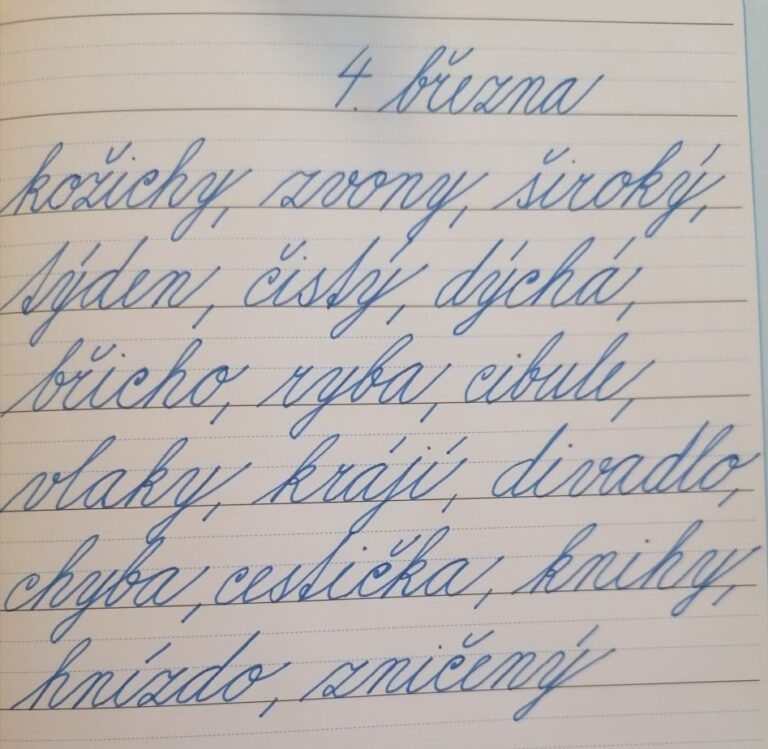 4. března
kožichy, zvony, široký,
týden, čistý, dýchá,
břicho, ryba, cibule,
vlaky, krájí, divadlo,
chyba, cestička, knihy,
hnízdo, zničený